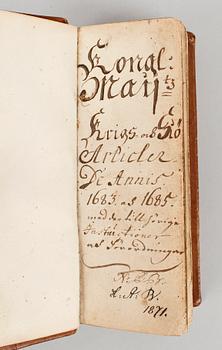 Kongl:
Maij:tz
Krigs och Siö
Articler
De Annis
1683. och 1685.
med der till hörige
Instructioner
och Förordningar
1871.